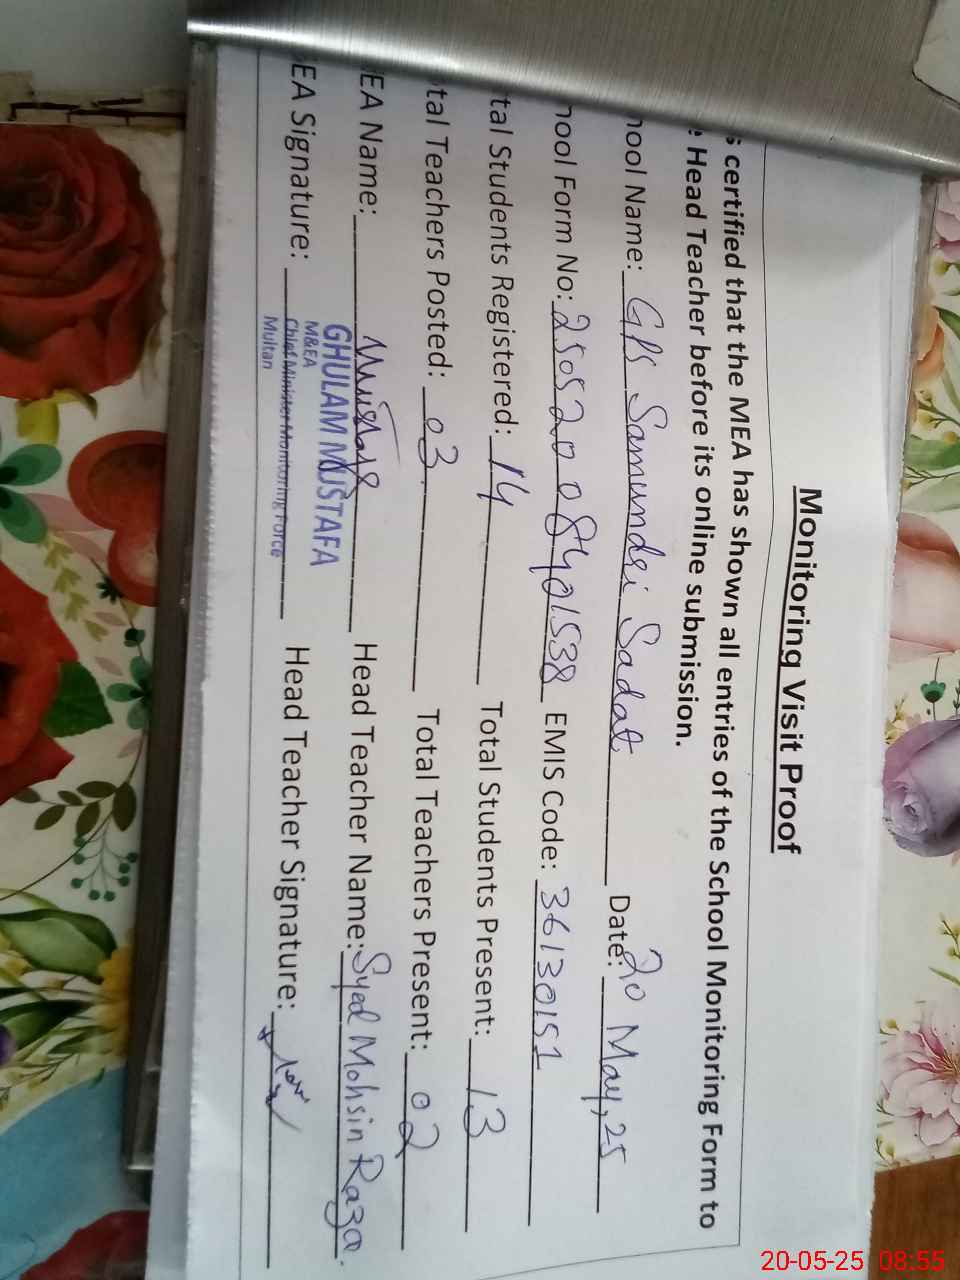 Monitoring Visit Proof
s certified that the MEA has shown all entries of the School Monitoring Form to
e Head Teacher before its online submission.
hool Name: GPS Samundri Sadat Date: 20 May, 25
hool Form No: 25052008401538 EMIS Code: 36130151
tal Students Registered: 14 Total Students Present: 13
tal Teachers Posted: 03 Total Teachers Present: 02
EA Name: Mustafa Head Teacher Name: Syed Mohsin Raza.
GHULAM MUSTAFA
EA Signature: Head Teacher Signature:
M&EA
Chief Minister Monitoring Force
Multan
20-05-25 08:55